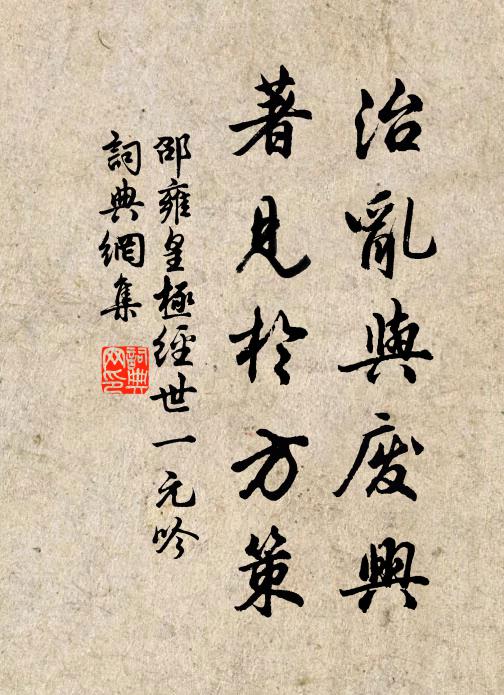 治亂與廢興
著見於方策
邵雍皇極經世一元吟
詞典網集
詞典網印